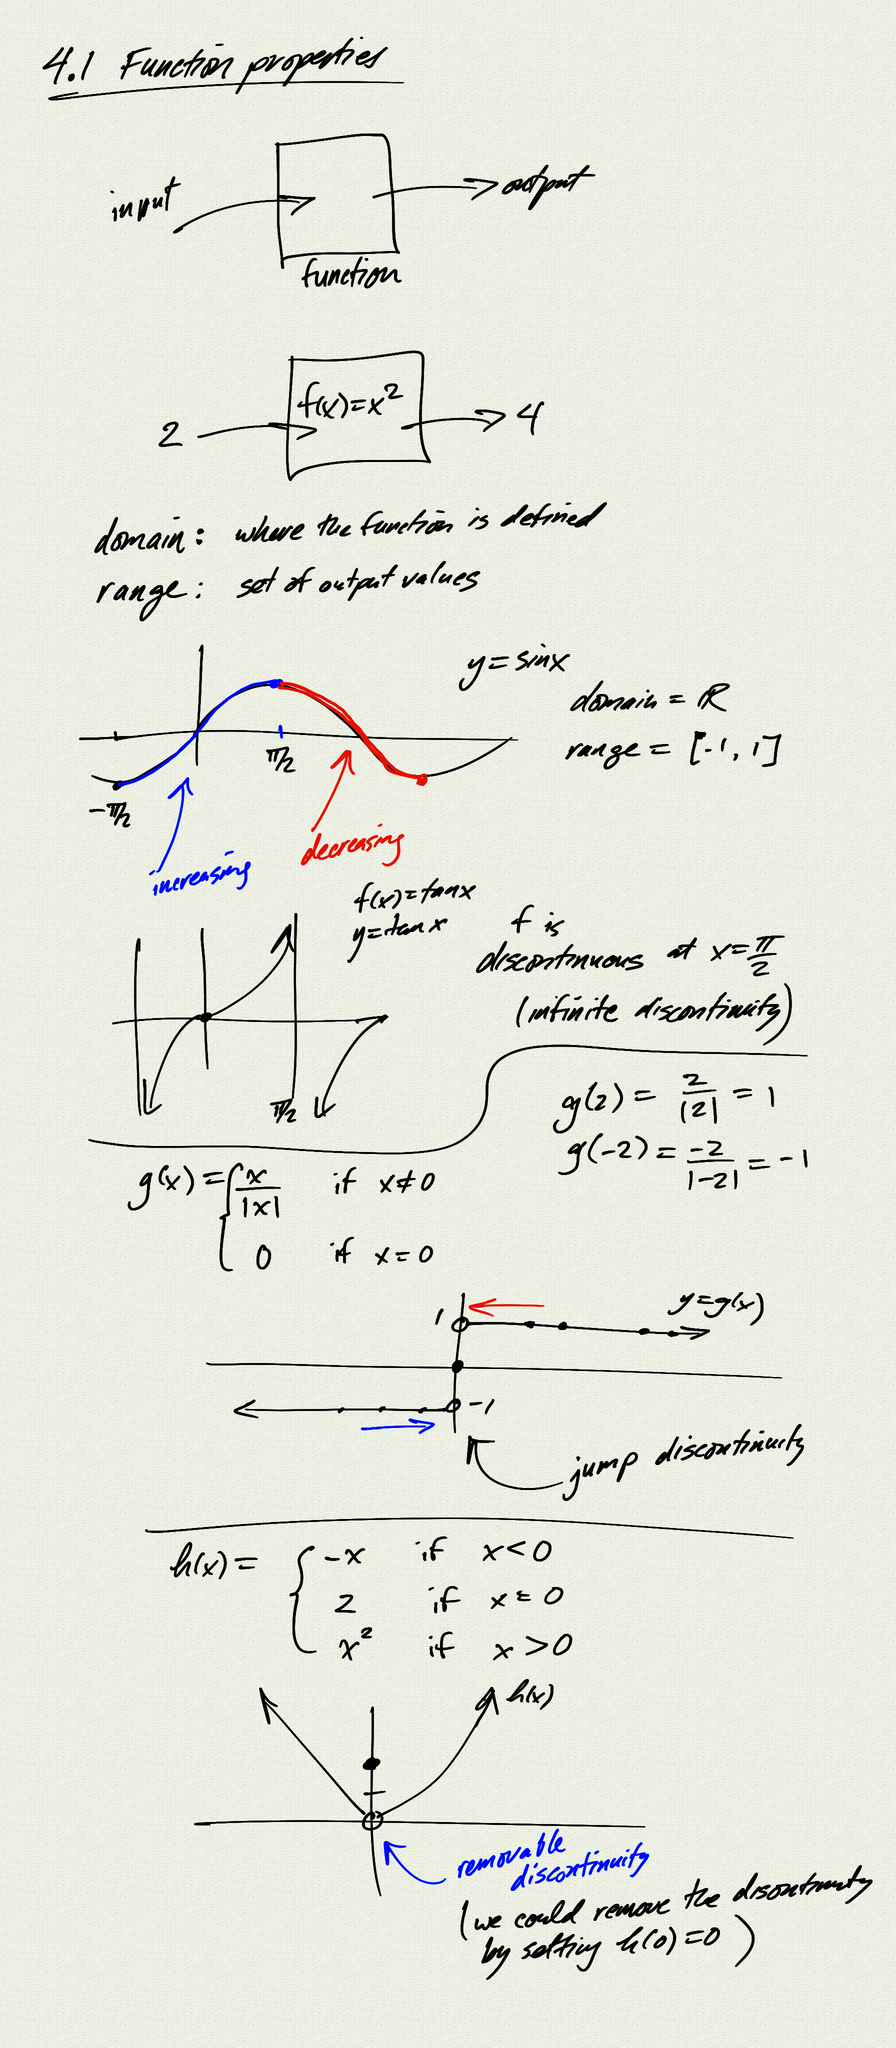 4.1 Function properties
input
output
function
f(x)=x²
2
4
domain: where the function is defined
range: set of output values
y=sinx
domain = ℝ
range = [-1, 1]
π/2
-π/2
increasing
decreasing
f(x)=tanx
y=tanx
f is
discontinuous at x=π/2
(infinite discontinuity)
π/2
g(2) = 2/|2| = 1
g(-2) = -2/|-2| = -1
g(x) = { x/|x| if x≠0
0 if x=0
1
y=g(x)
-1
jump discontinuity
h(x) = { -x if x<0
2 if x=0
x² if x>0
h(x)
removable
discontinuity
(we could remove the discontinuity
by setting h(0)=0)